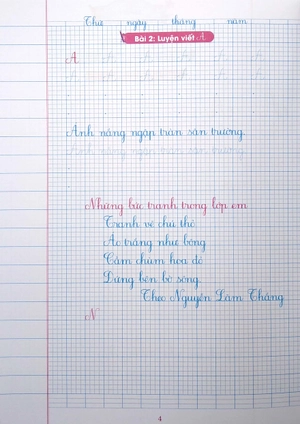 Thứ ngày tháng năm
Bài 2: Luyện viết A
A A A A A A A
A A A A A A A
Ánh nắng ngập tràn sân trường.
Ánh nắng ngập tràn sân trường.
Những bức tranh trong lớp em
Tranh vẽ chú thỏ
Áo trắng như bông
Cầm chùm hoa đỏ
Đứng bên bờ sông.
Theo Nguyễn Lãm Thắng
N
4